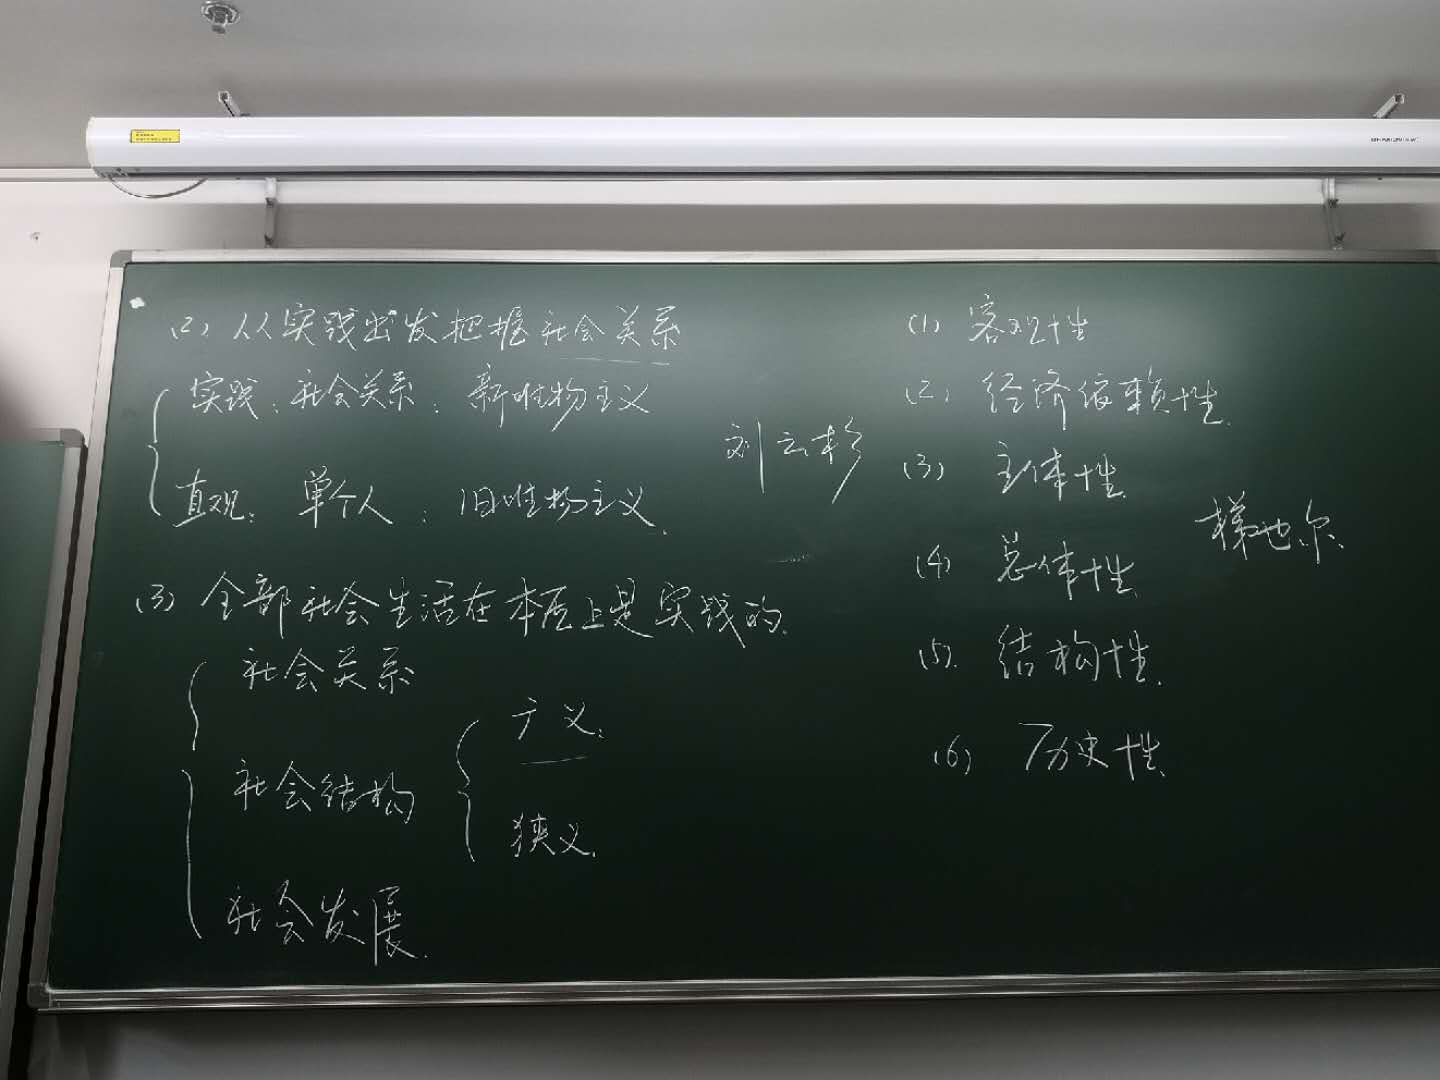 (2) 从实践出发把握社会关系
实践: 社会关系: 新唯物主义
直观: 单个人: 旧唯物主义.
(3) 全部社会生活在本质上是实践的.
社会关系
社会结构
广义.
狭义.
社会发展.
刘云杉
(1) 客观性
(2) 经济依赖性.
(3) 主体性.
(4) 总体性.
(5). 结构性.
(6) 历史性.
梯也尔.